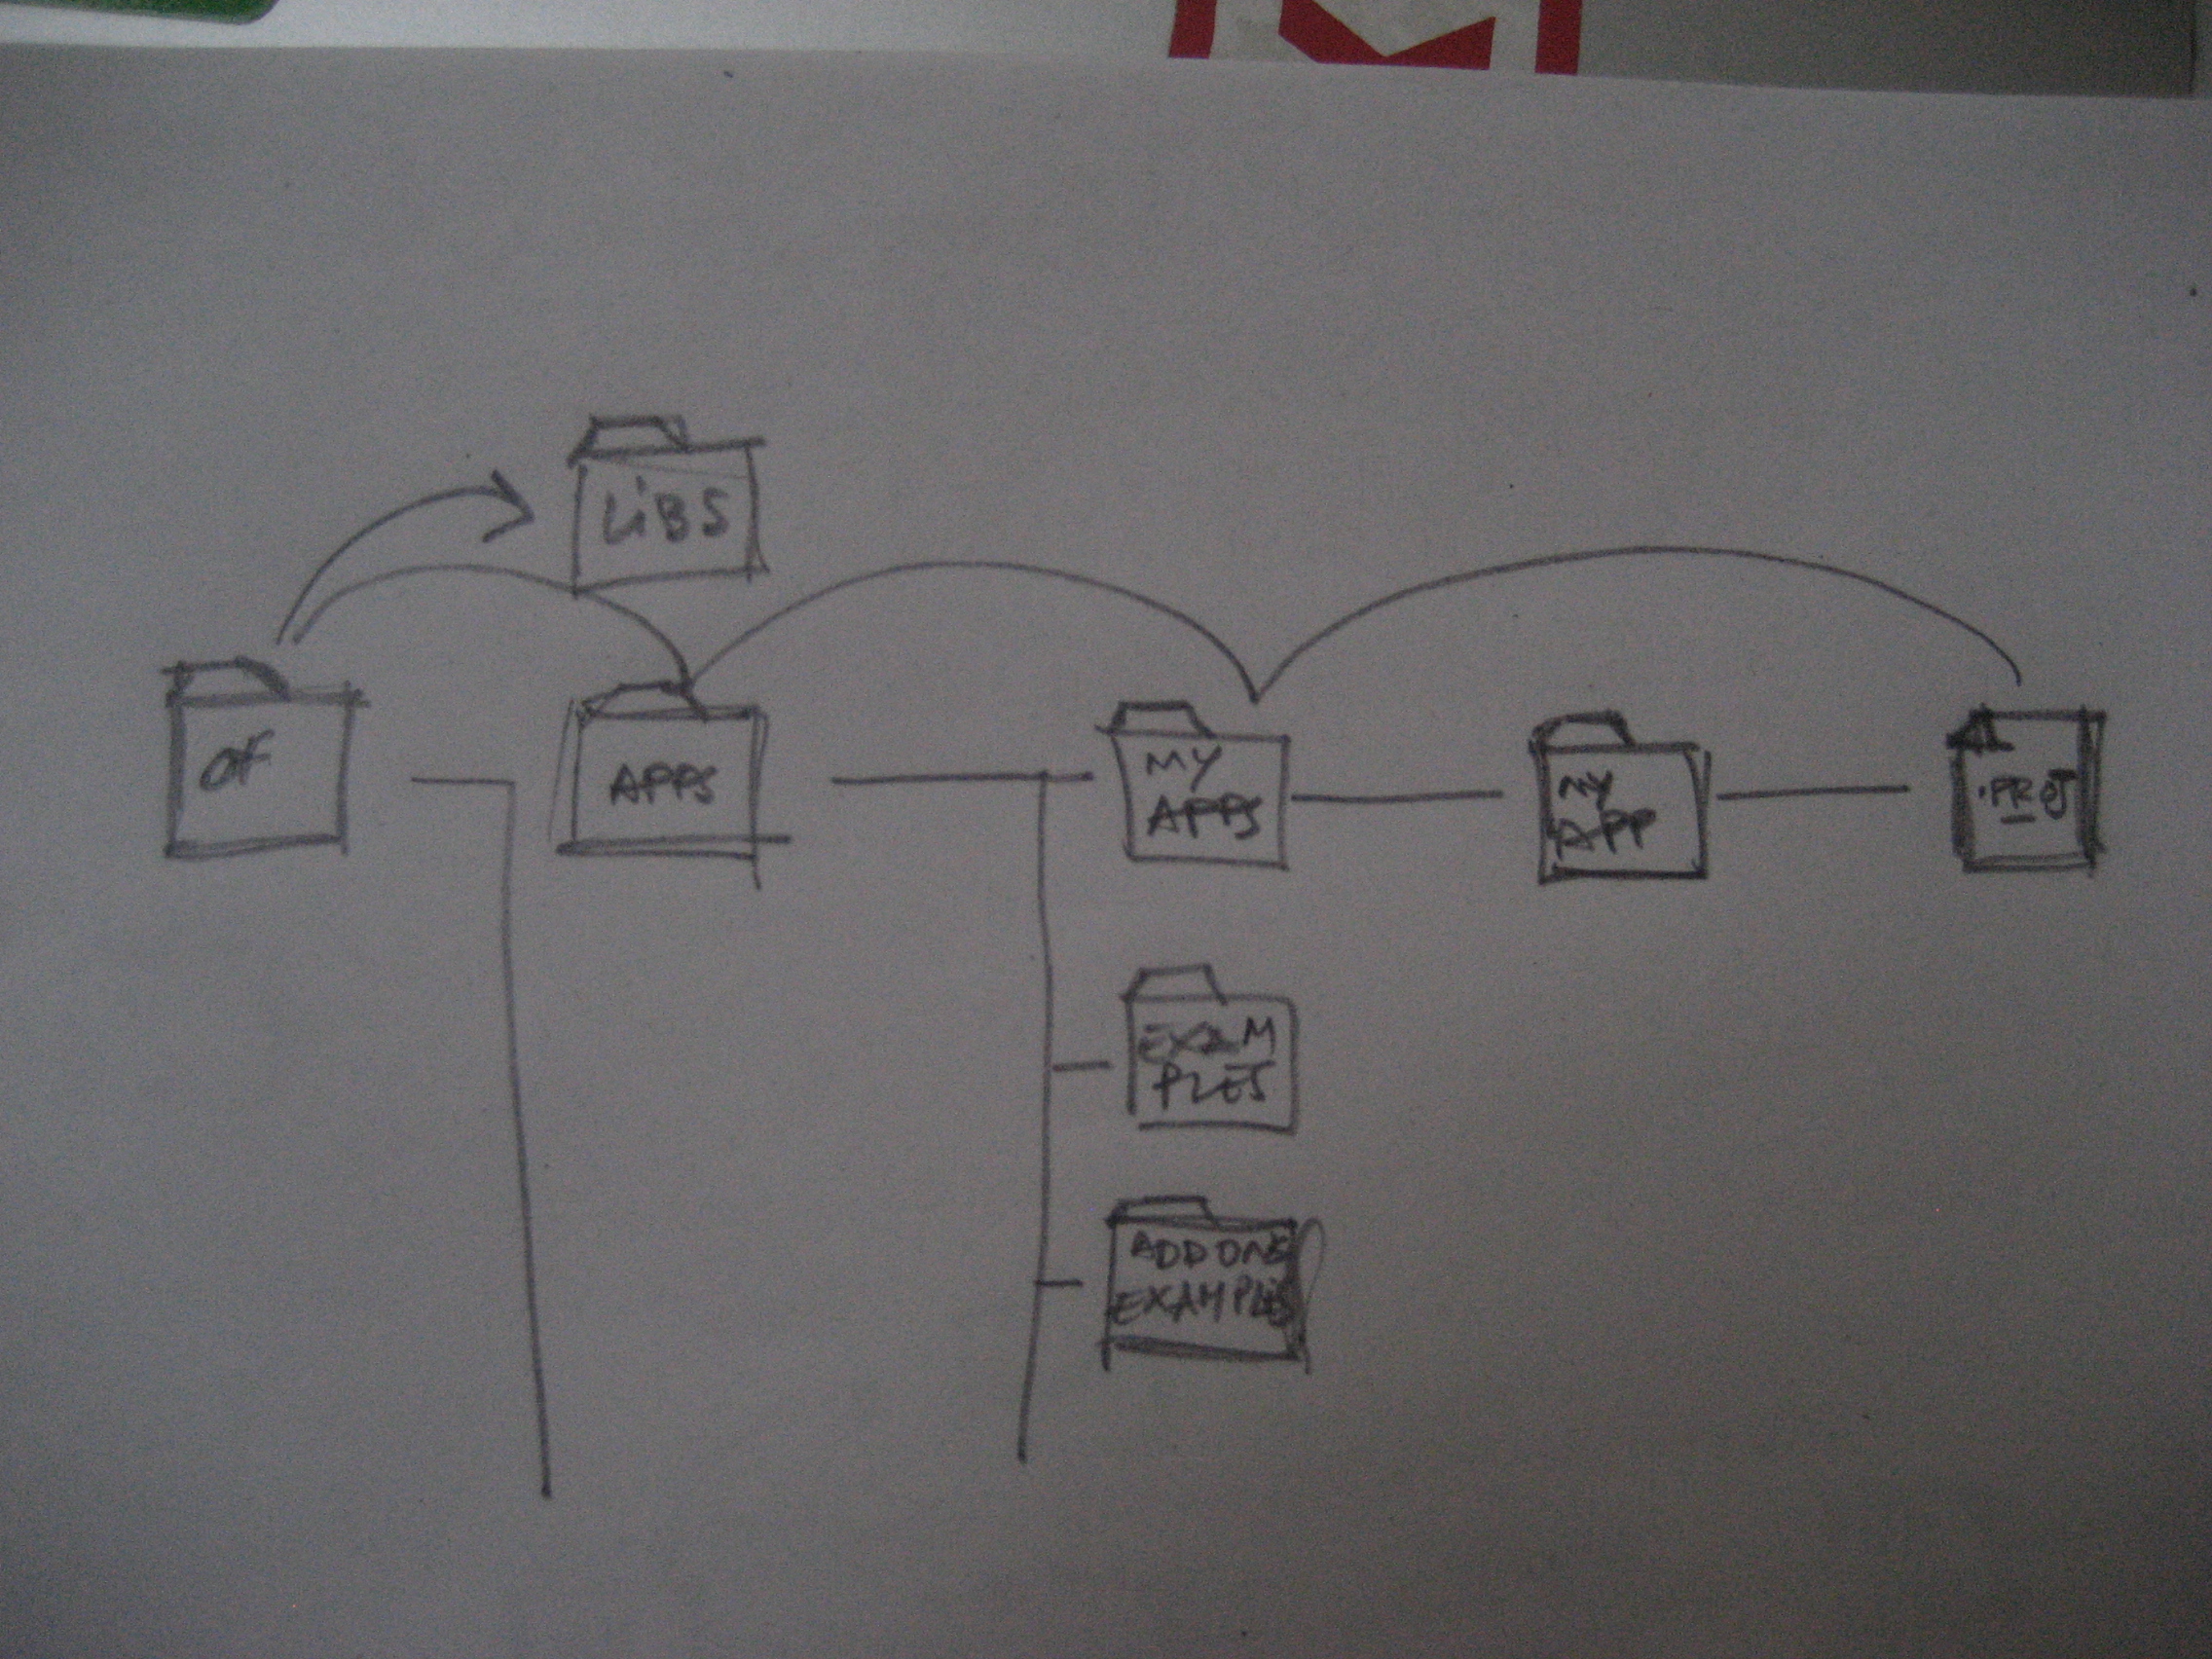 LiBS
OF
APPS
MY
APPS
MY
APP
.PROJ
EXAM
PLES
ADDONS
EXAMPLES